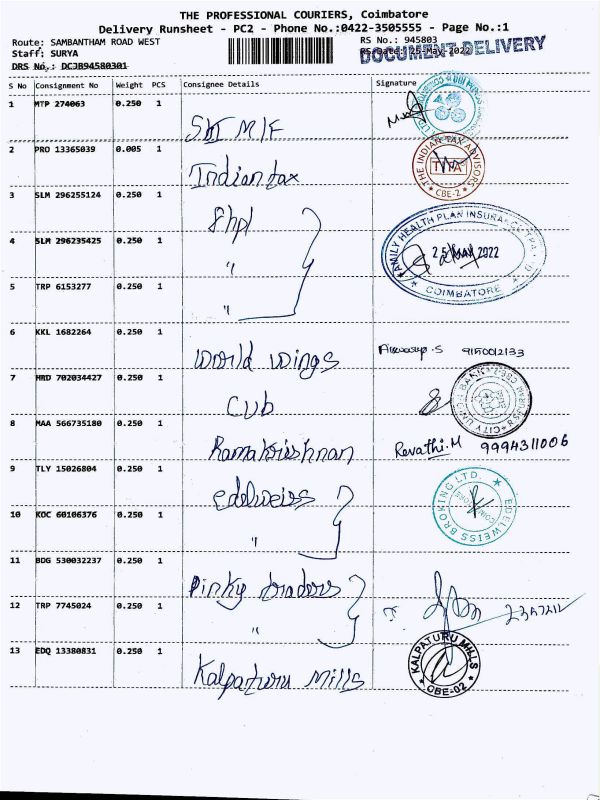 THE PROFESSIONAL COURIERS, Coimbatore
Delivery Runsheet - PC2 - Phone No.:0422-3505555 - Page No.:1
Route: SAMBANTHAM ROAD WEST
RS No.: 945803
Staff: SURYA
RS Date: 25-May-2022
DOCUMENT DELIVERY
DRS No.: DCJB94580301
S No Consignment No Weight PCS Consignee Details Signature
1 MTP 274063 0.250 1
M/F
2 PRO 13365039 0.005 1 Indian tax
THE INDIAN TAX ADVISORS
CBE-2
3 SLM 296255124 0.250 1 Fhpl
FAMILY HEALTH PLAN INSURANCE TPA
4 SLM 296235425 0.250 1 "
25 MAY 2022
COIMBATORE
5 TRP 6153277 0.250 1 "
6 KKL 1682264 0.250 1 World wings 9150012133
7 HRD 702034427 0.250 1 CUB
CITY UNION BANK
8 MAA 566735180 0.250 1 Ramakrishnan Revathi.M 9994311006
9 TLY 15026804 0.250 1 edelweiss
EDELWEISS BROKING LTD.
10 KOC 60106376 0.250 1 "
11 BDG 530032237 0.250 1 Pinky traders
12 TRP 7745024 0.250 1 "
13 EDQ 13380831 0.250 1 Kalpaturu Mills
KALPATURU MILLS
CBE-02